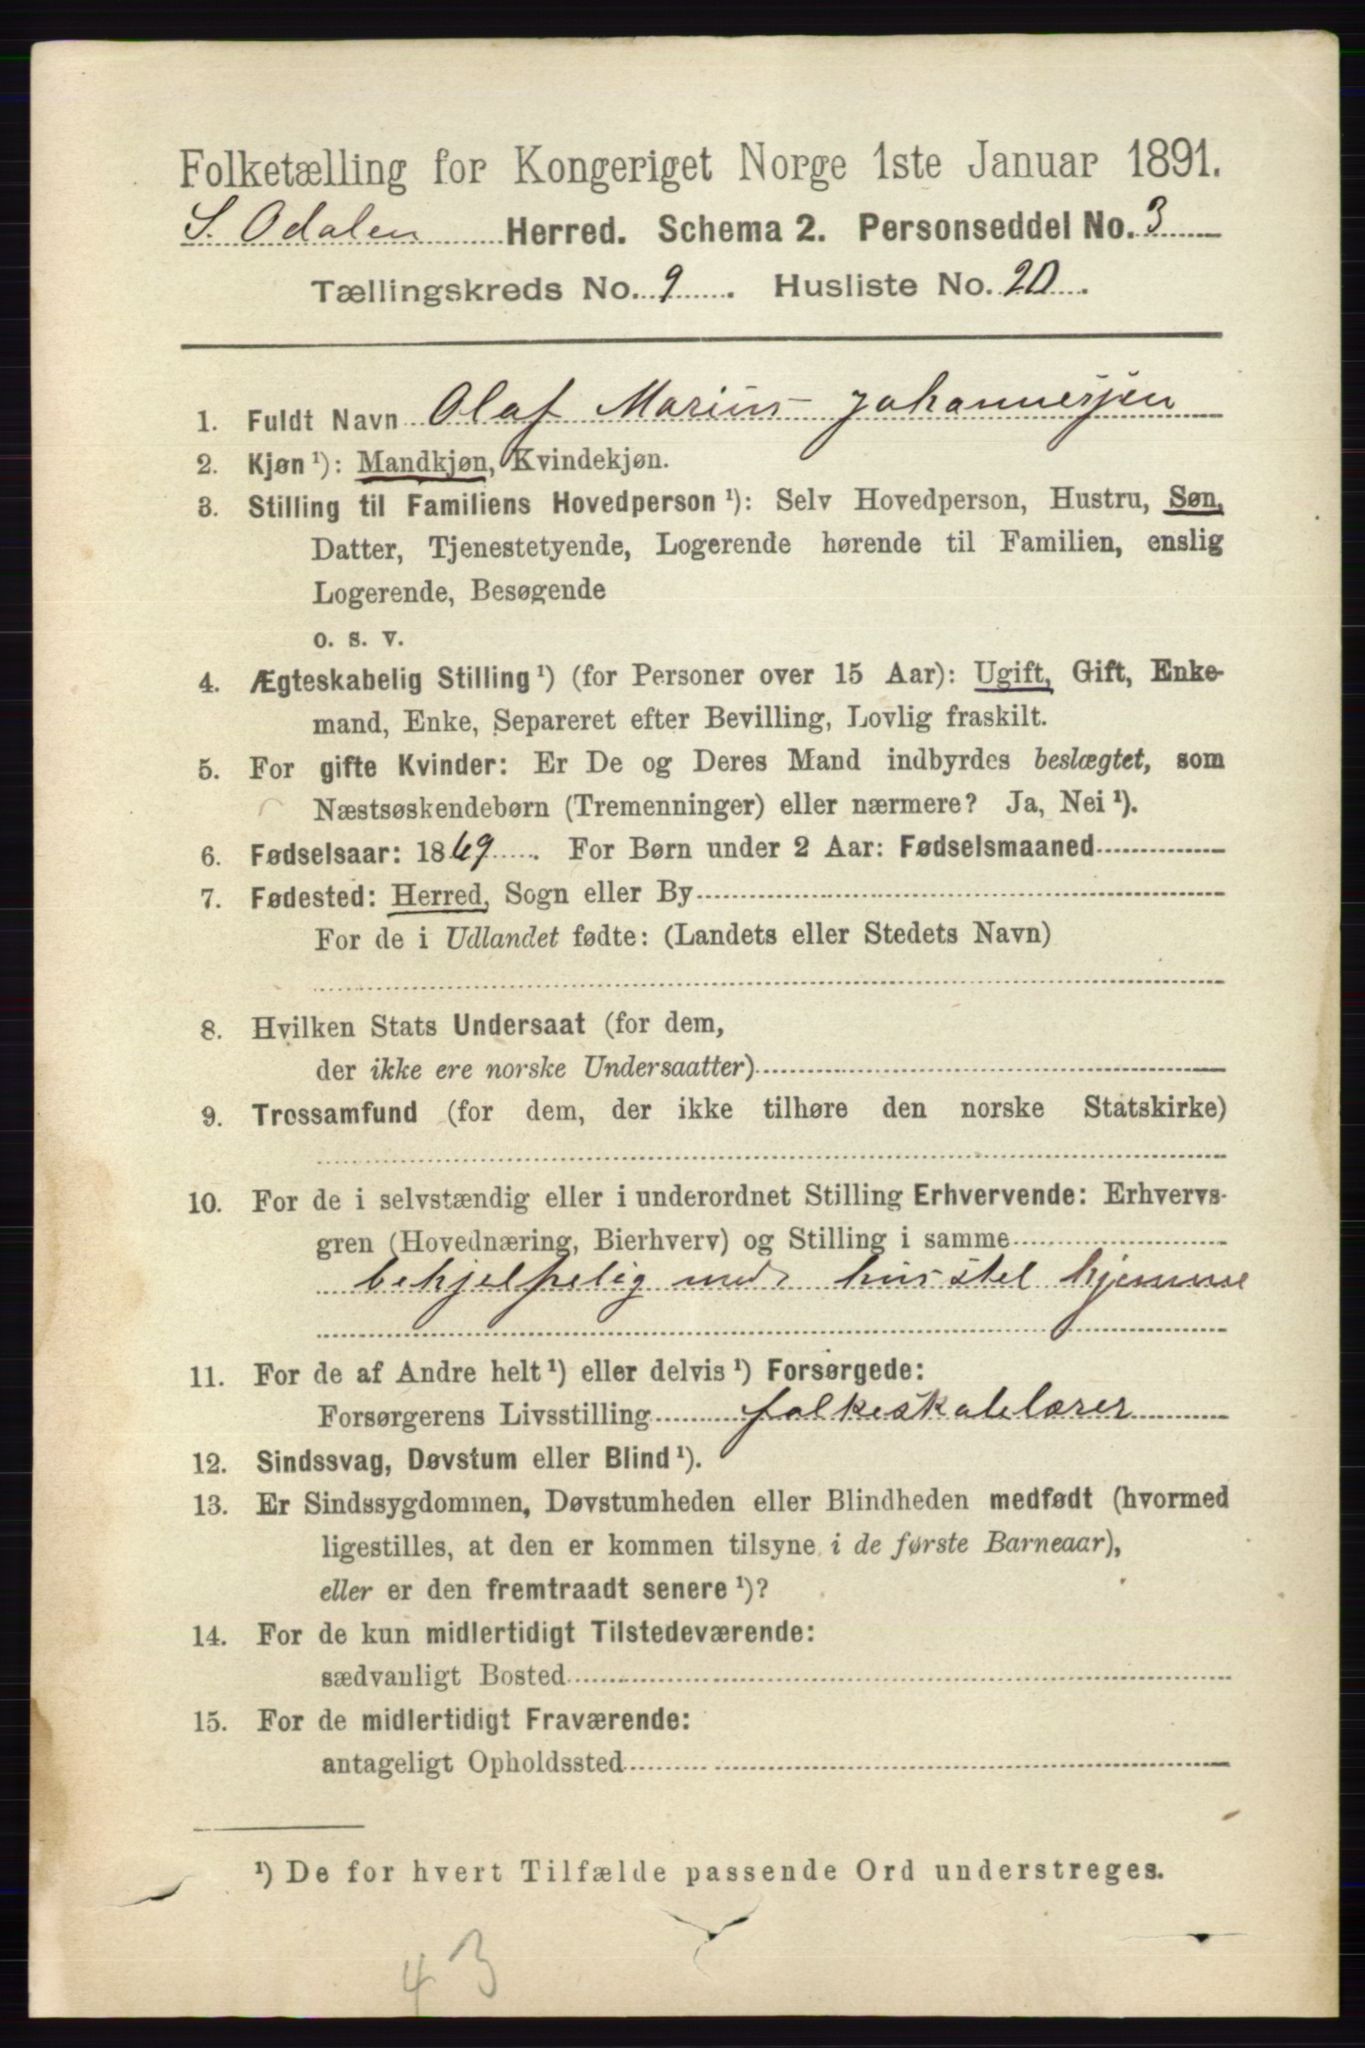 Folketælling for Kongeriget Norge 1ste Januar 1891.
S. Odalen Herred. Schema 2. Personseddel No. 3
Tællingskreds No. 9. Husliste No. 20.
1. Fuldt Navn Olaf Marius Johannessen
2. Kjøn ¹): Mandkjøn, Kvindekjøn.
3. Stilling til Familiens Hovedperson ¹): Selv Hovedperson, Hustru, Søn,
Datter, Tjenestetyende, Logerende hørende til Familien, enslig
Logerende, Besøgende
o. s. v.
4. Ægteskabelig Stilling ¹) (for Personer over 15 Aar): Ugift, Gift, Enke-
mand, Enke, Separeret efter Bevilling, Lovlig fraskilt.
5. For gifte Kvinder: Er De og Deres Mand indbyrdes beslægtet, som
Næstsøskendebørn (Tremenninger) eller nærmere? Ja, Nei ¹).
6. Fødselsaar: 1869. For Børn under 2 Aar: Fødselsmaaned
7. Fødested: Herred, Sogn eller By
For de i Udlandet fødte: (Landets eller Stedets Navn)
8. Hvilken Stats Undersaat (for dem,
der ikke ere norske Undersaatter)
9. Trossamfund (for dem, der ikke tilhøre den norske Statskirke)
10. For de i selvstændig eller i underordnet Stilling Erhvervende: Erhvervs-
gren (Hovednæring, Bierhverv) og Stilling i samme
behjelpelig med husstel hjemme
11. For de af Andre helt ¹) eller delvis ¹) Forsørgede:
Forsørgerens Livsstilling folkeskolelærer
12. Sindssvag, Døvstum eller Blind ¹).
13. Er Sindssygdommen, Døvstumheden eller Blindheden medfødt (hvormed
ligestilles, at den er kommen tilsyne i de første Barneaar),
eller er den fremtraadt senere ¹)?
14. For de kun midlertidigt Tilstedeværende:
sædvanligt Bosted
15. For de midlertidigt Fraværende:
antageligt Opholdssted
¹) De for hvert Tilfælde passende Ord understreges.
43